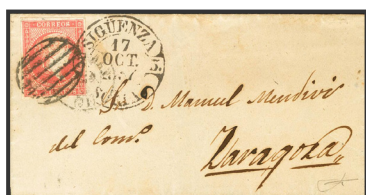 CORREOS
SIGÜENZA
17
OCT.
S. D. Manuel Mendivi
del Com.º
Zaragoza